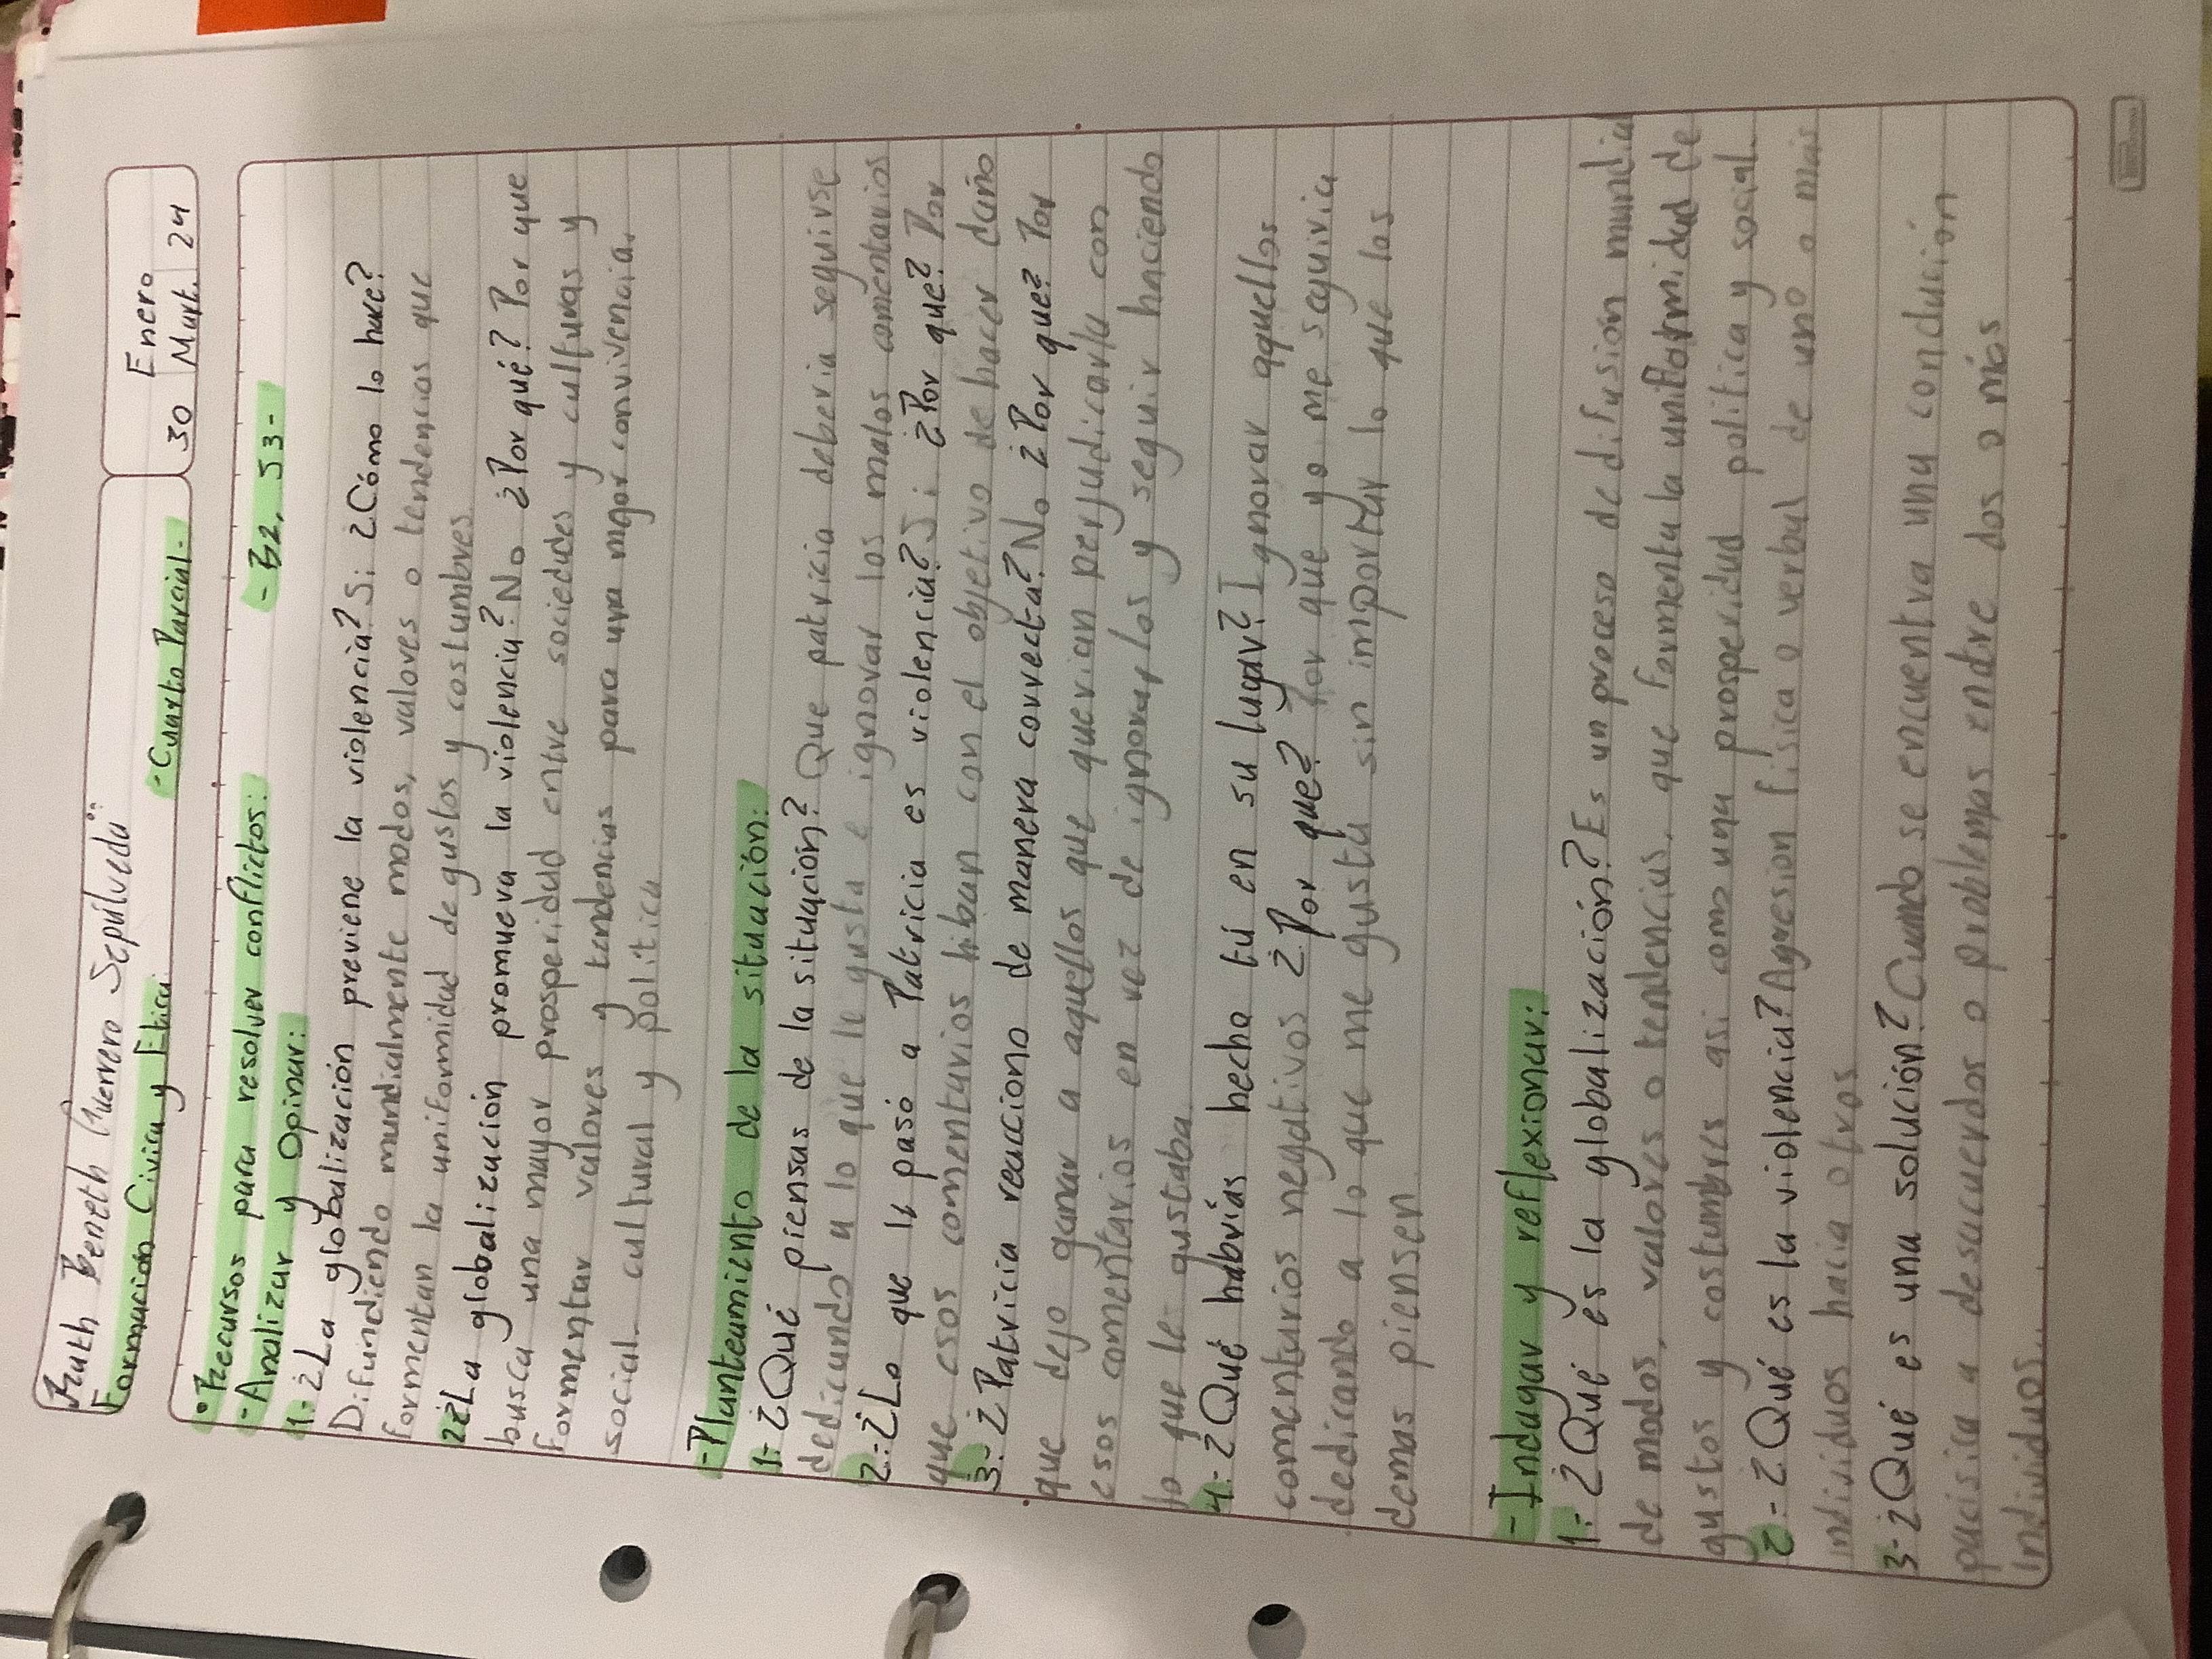 Ruth Beneth Guerrero Sepúlveda
Enero
Formación Civica y Etica
-Cuarto Parcial-
30 Mart. 24
• Recursos para resolver conflictos:
- B2, S3-
-Analizar y Opinar:
1.- ¿La globalización previene la violencia? Si ¿Cómo lo hace?
Difundiendo mundialmente modos, valores o tendencias que
formentan la uniformidad de gustos y costumbres
2.- ¿La globalización promueva la violencia? No ¿Por qué? Por que
busca una mayor prosperidad entre sociedades y culturas y
formentar valores y tendencias para una mayor convivencia,
social cultural y politica
-Planteamiento de la situación:
1.- ¿Qué piensas de la situación? Que patricia deberia seguirse
dedicando a lo que le gusta e ignorar los malos comentarios
2.- ¿Lo que le pasó a Patricia es violencia? Si ¿Por que? Por
que esos comentarios hiban con el objetivo de hacer daño
3.- ¿Patricia reacciono de manera correcta? No ¿Por que? Por
que dejo ganar a aquellos que querian perjudicarla con
esos comentarios en vez de ignorarlos y seguir haciendo
lo que le gustaba
4.- ¿Qué habrías hecho tú en su lugar? Ignorar aquellos
comentarios negativos ¿Por que? Por que yo me seguiria
dedicando a lo que me gusta sin importar lo que los
demas piensen
- Indagar y reflexionar:
1.- ¿Qué es la globalización? Es un proceso de difusión mundial
de modos, valores o tendencias, que formenta la uniformidad de
gustos y costumbres asi como una prosperidad politica y social
2.- ¿Qué es la violencia? Agresion fisica o verbal de uno o mas
individuos hacia otros
3- ¿Qué es una solución? Cuando se encuentra una conclución
pacisica a desacuerdos o problemas endre dos o mas
individuos.